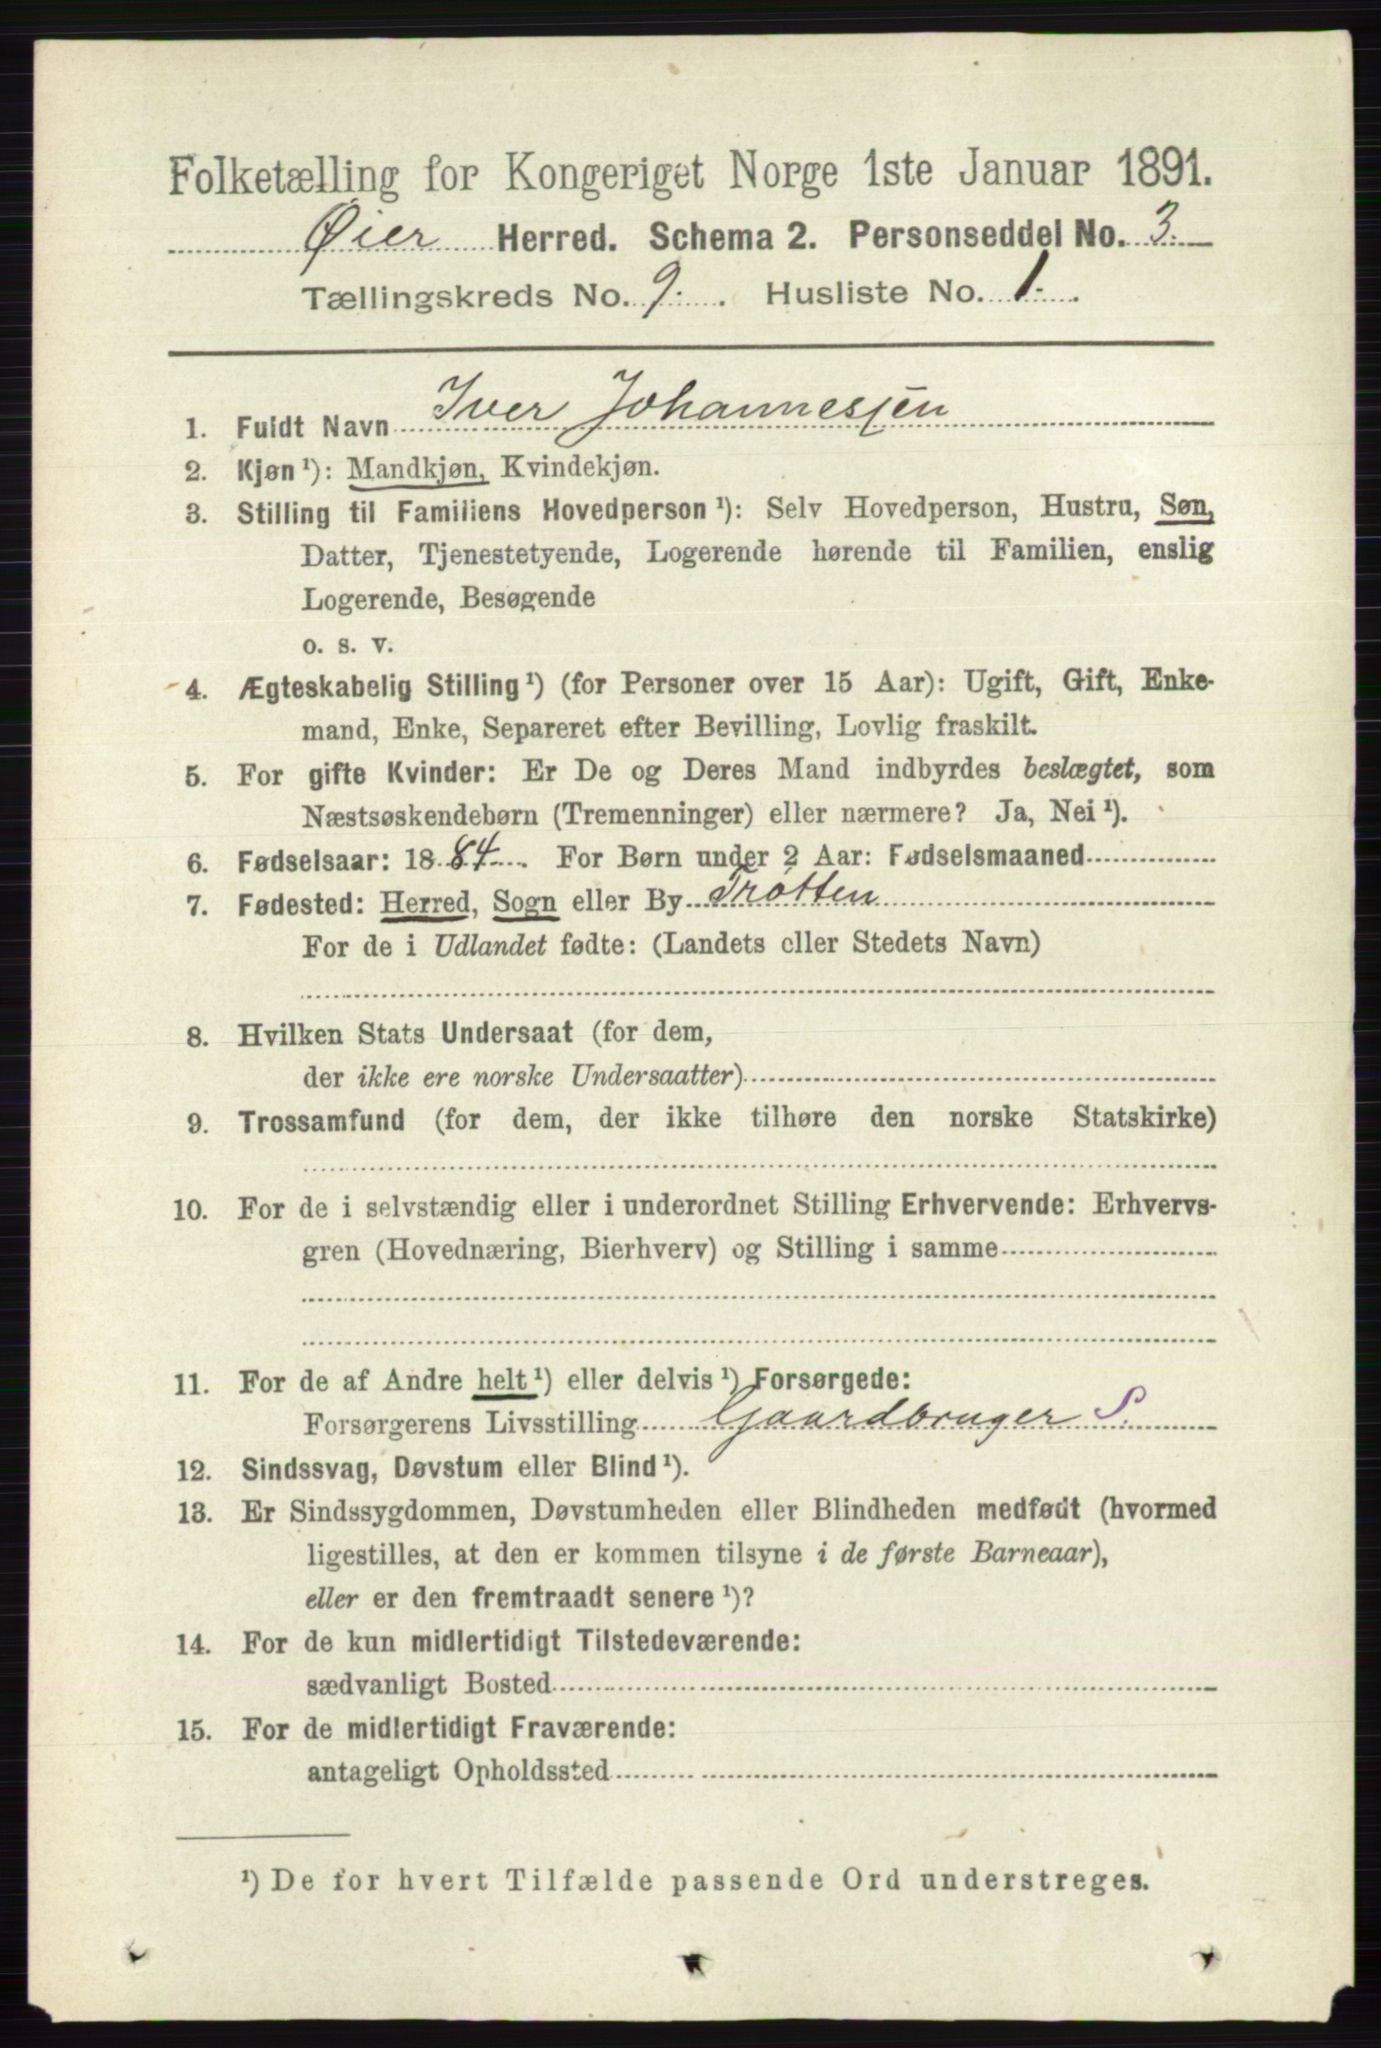 Folketælling for Kongeriget Norge 1ste Januar 1891.
Øier Herred. Schema 2. Personseddel No. 3.
Tællingskreds No. 9. Husliste No. 1.
1. Fuldt Navn Iver Johannessen
2. Kjøn ¹): Mandkjøn, Kvindekjøn.
3. Stilling til Familiens Hovedperson ¹): Selv Hovedperson, Hustru, Søn,
Datter, Tjenestetyende, Logerende hørende til Familien, enslig
Logerende, Besøgende
o. s. v.
4. Ægteskabelig Stilling ¹) (for Personer over 15 Aar): Ugift, Gift, Enke-
mand, Enke, Separeret efter Bevilling, Lovlig fraskilt.
5. For gifte Kvinder: Er De og Deres Mand indbyrdes beslægtet, som
Næstsøskendebørn (Tremenninger) eller nærmere? Ja, Nei ¹).
6. Fødselsaar: 1884. For Børn under 2 Aar: Fødselsmaaned
7. Fødested: Herred, Sogn eller By Trötten
For de i Udlandet fødte: (Landets eller Stedets Navn)
8. Hvilken Stats Undersaat (for dem,
der ikke ere norske Undersaatter)
9. Trossamfund (for dem, der ikke tilhøre den norske Statskirke)
10. For de i selvstændig eller i underordnet Stilling Erhvervende: Erhvervs-
gren (Hovednæring, Bierhverv) og Stilling i samme
11. For de af Andre helt ¹) eller delvis ¹) Forsørgede:
Forsørgerens Livsstilling Gaardbruger S.
12. Sindssvag, Døvstum eller Blind ¹).
13. Er Sindssygdommen, Døvstumheden eller Blindheden medfødt (hvormed
ligestilles, at den er kommen tilsyne i de første Barneaar),
eller er den fremtraadt senere ¹)?
14. For de kun midlertidigt Tilstedeværende:
sædvanligt Bosted
15. For de midlertidigt Fraværende:
antageligt Opholdssted
¹) De for hvert Tilfælde passende Ord understreges.